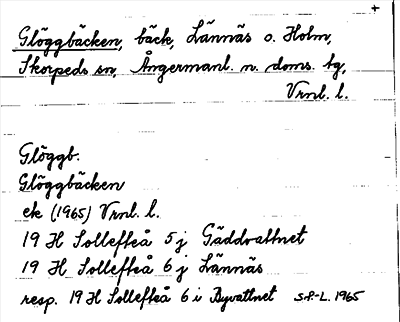 +
Glöggbäcken, bäck, Lännäs o. Holm,
Skorpeds sn, Ångermanl. n. doms. tg,
Vrnl. l.
Glöggb.
Glöggbäcken
ek (1965) Vrnl. l.
19 H Sollefteå 5 j Gäddvattnet
19 H Sollefteå 6 j Lännäs
resp. 19 H Sollefteå 6 i Byvattnet S.P-L. 1965